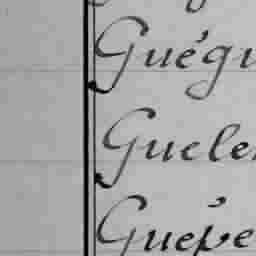 Guégu
Guele
Guépe